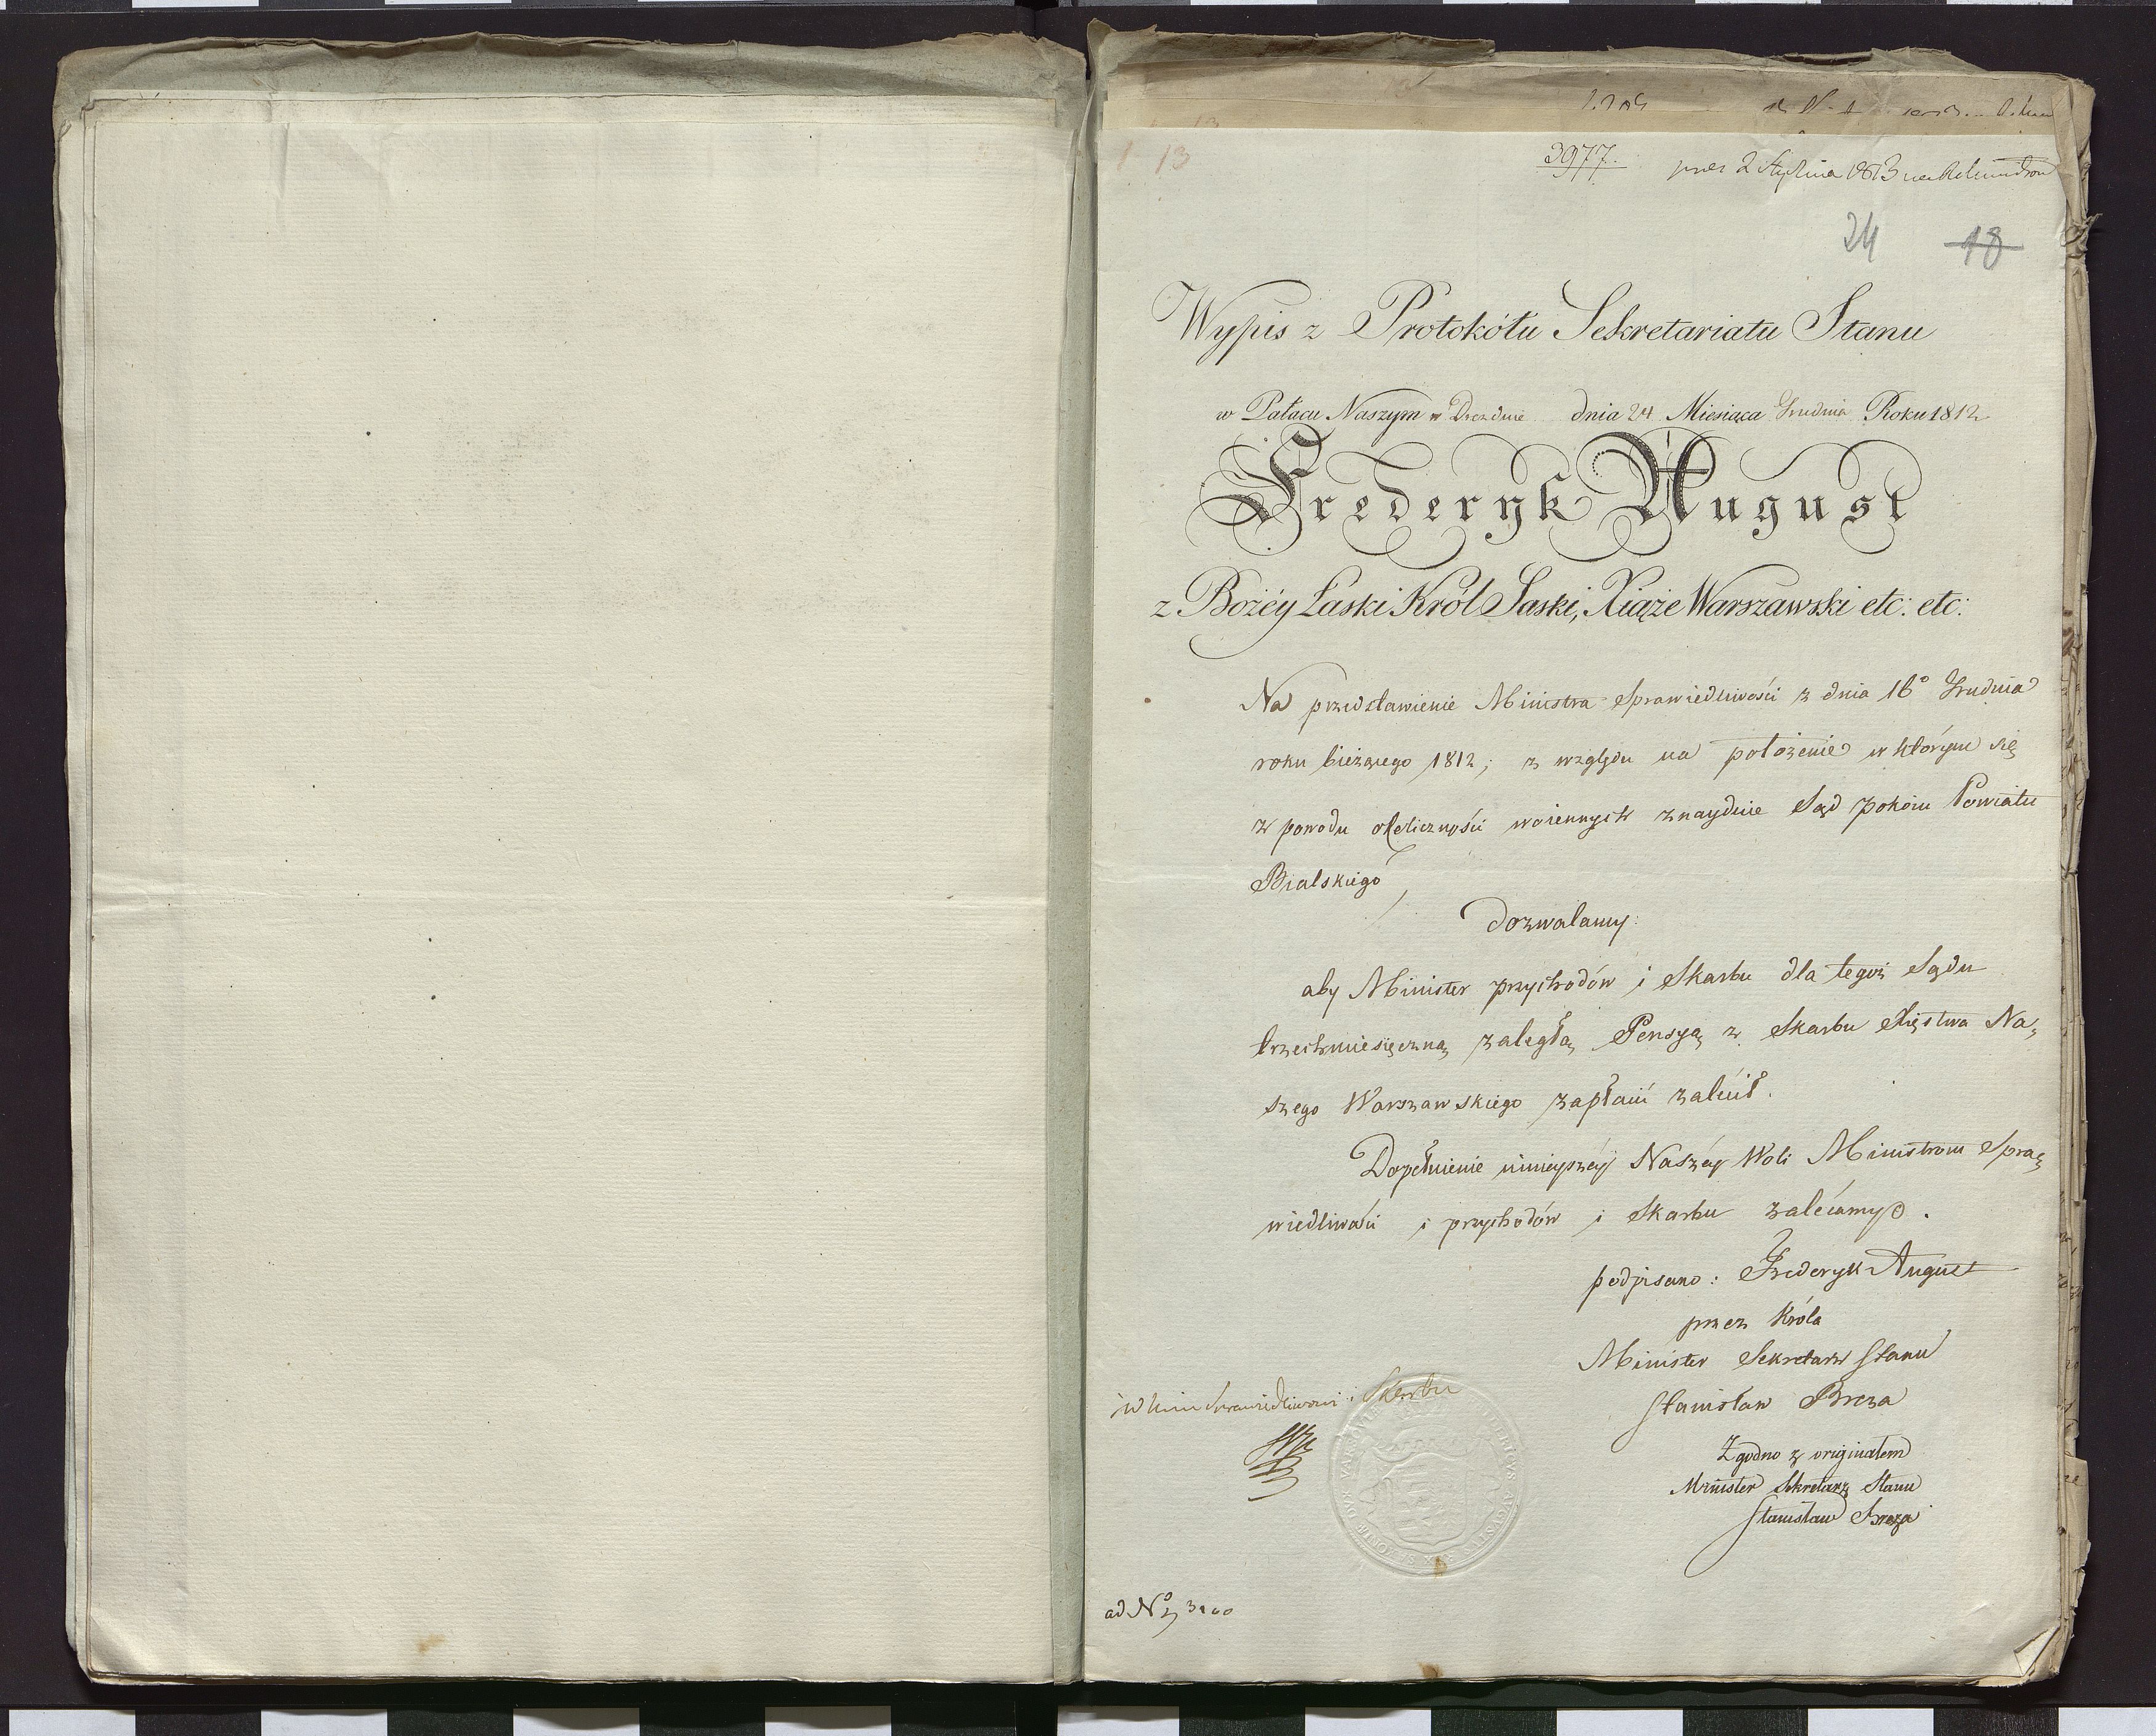 1 13
3977.
prez 2 Stycznia 1813
24 18
Wypis z Protokółu Sekretariatu Stanu
w Pałacu Naszym w Dreznie dnia 24 Miesiąca Grudnia Roku 1812
Frederyk August
z Bożéy Łaski Król Saski, Xiąże Warszawski etc: etc:
Na przedstawienie Ministra Sprawiedliwości z dnia 16° Grudnia
roku bieżącego 1812; z względu na położenie w którym się
z powodu okoliczności woiennych znayduie Sąd pokoiu Powiatu
Bialskiego,
dozwalamy:
aby Minister przychodów i Skarbu dla tegoż Sądu
trzechmiesięczną zaległą Pensyą z Skarbu Xięstwa Na,
szego Warszawskiego zapłacić zalécił.
Dopełnienie ninieyszéy Naszéy Woli Ministrom Spra,
wiedliwości i przychodów i Skarbu zalécamy.
podpisano: Frederyk August
przez Króla
Minister Sekretarz Stanu
Stanisław Breza
Zgodno z originałem
Minister Sekretarz Stanu
Stanisław Breza
Sprawiedliwości i Skarbu
ad No